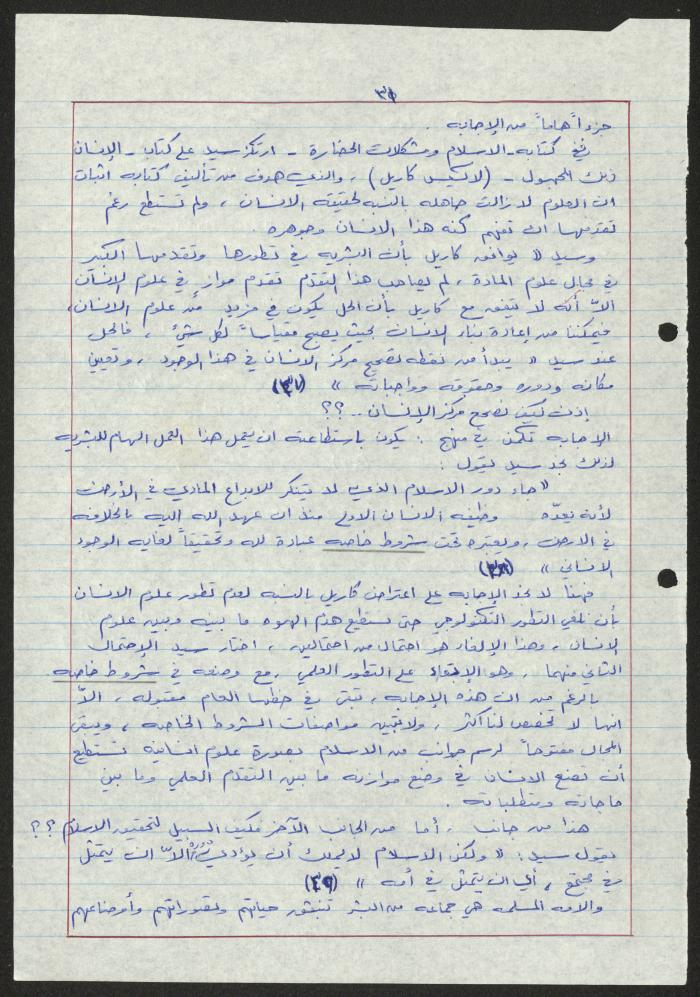 ٣٥
جزءاً هاماً من الإجابه .
ففي كتابه - الاسلام ومشكلات الحضارة - ارتكز سيد على كتاب - الإنسان
ذلك المجهول - (لالكسيس كاريل) ، والذي هدف من تأليف كتابه اثبات
ان العلوم لا زالت جاهله بالنسبه لحقيقة الانسان ، ولم تستطع رغم
تقدمها ان تفهم كنه هذا الانسان وجوهره .
وسيد " يوافق كاريل بأن البشريه في تطورها وتقدمها الكبير
في مجال علوم المادة ، لم يصاحب هذا التقدم تقدم مواز في علوم الانسان
الاّ أنه لا يتفق مع كاريل بأن الحل يكون في مزيد من علوم الانسان ،
فيمكننا من إعادة بناء الانسان بحيث يصبح مقياساً لكل شيء ، فالحل
عند سيد " يبدأ من نقطه تصحيح مركز الانسان في هذا الوجود ، وتعيين
مكانه ودوره وحقوقه وواجباته " (٣٧)
إذن كيف نصحح مركز الإنسان .. ؟؟
الاجابه تكمن في منهج : يكون باستطاعته ان يعمل هذا العمل الهام للبشريه
لذلك نجد سيد يقول :
" جاء دور الاسلام الذي لا يتنكر للابداع المادي في الأرض
لأنه يعدّه وظيفه الانسان الاولى منذ ان عهد الله اليه بالخلافه
في الارض ، ويعتبره تحت شروط خاصه عبادة لله وتحقيقاً لغايه الوجود
الانساني " (٣٨)
فهنا لا نجد الإجابه على اعتراض كاريل بالنسبه لعدم تطور علوم الانسان
بأن نلغي التطور التكنولوجي حتى نستطيع هدم الهوه ما بينه وبين علوم
الانسان ، وهذا الإلغاء هو احتمال من احتمالين ، اختار سيد الإحتمال
الثاني منهما ، وهو الإبقاء على التطور العلمي ، مع وضعه في شروط خاصه .
بالرغم من ان هذه الإجابه ، تبقى في خطها العام مقبوله ، الاّ
انها لا تخصص لنا أكثر ، ولا تبين مواصفات الشروط الخاصه ، ويبقى
المجال مفتوحاً لرسم جوانب من الاسلام بصورة علوم انسانية تستطيع
أن تضع الانسان في وضع موازنه ما بين التقدم العلمي وما بين
حاجاته ومتطلباته .
هذا من جانب ، أما من الجانب الآخر فكيف السبيل لتحقيق الاسلام ؟؟
يقول سيد : " ولكن الاسلام لا يملك أن يؤدي دوره الاّ ان يتمثل
في مجتمع ، أي ان يتمثل في أمه " (٣٩)
والامه المسلمه هي جماعه من البشر تنبثق حياتهم وتصوراتهم وأوضاعهم